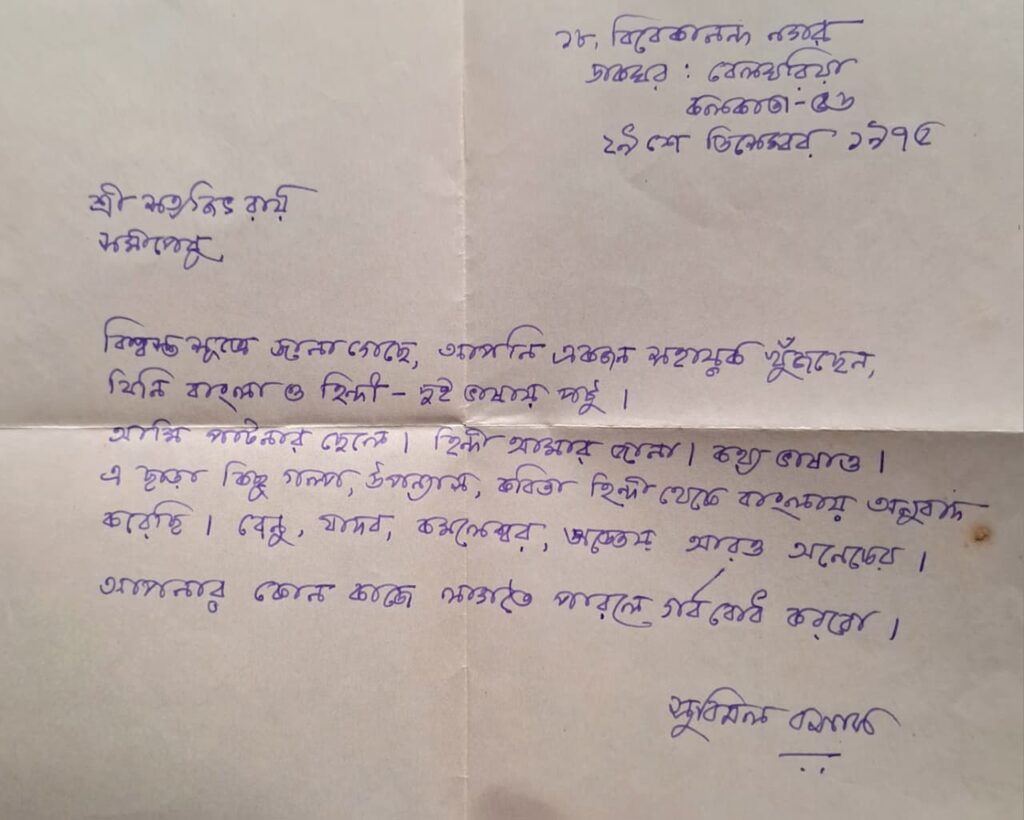 ১৮, বিবেকানন্দ নগর
ডাকঘর : বেলঘরিয়া
কলকাতা - ৫৬
২৯ শে ডিসেম্বর ১৯৭৫
শ্রী সত্যজিৎ রায়
সমীপেষু,
বিশ্বস্ত সূত্রে জানা গেছে, আপনি একজন সহায়ক খুঁজছেন,
যিনি বাংলা ও হিন্দী - দুই ভাষায় পটু।
আমি পাটনার ছেলে। হিন্দী আমার জানা। কথ্য ভাষাও।
এ ছাড়া কিছু গল্প, উপন্যাস, কবিতা হিন্দী থেকে বাংলায় অনুবাদ
করেছি। রেনু, যাদব, কমলেশ্বর, অজ্ঞেয় আরও অনেকের।
আপনার কোন কাজে লাগতে পারলে গর্ববোধ করবো।
সুবিমল বসাক